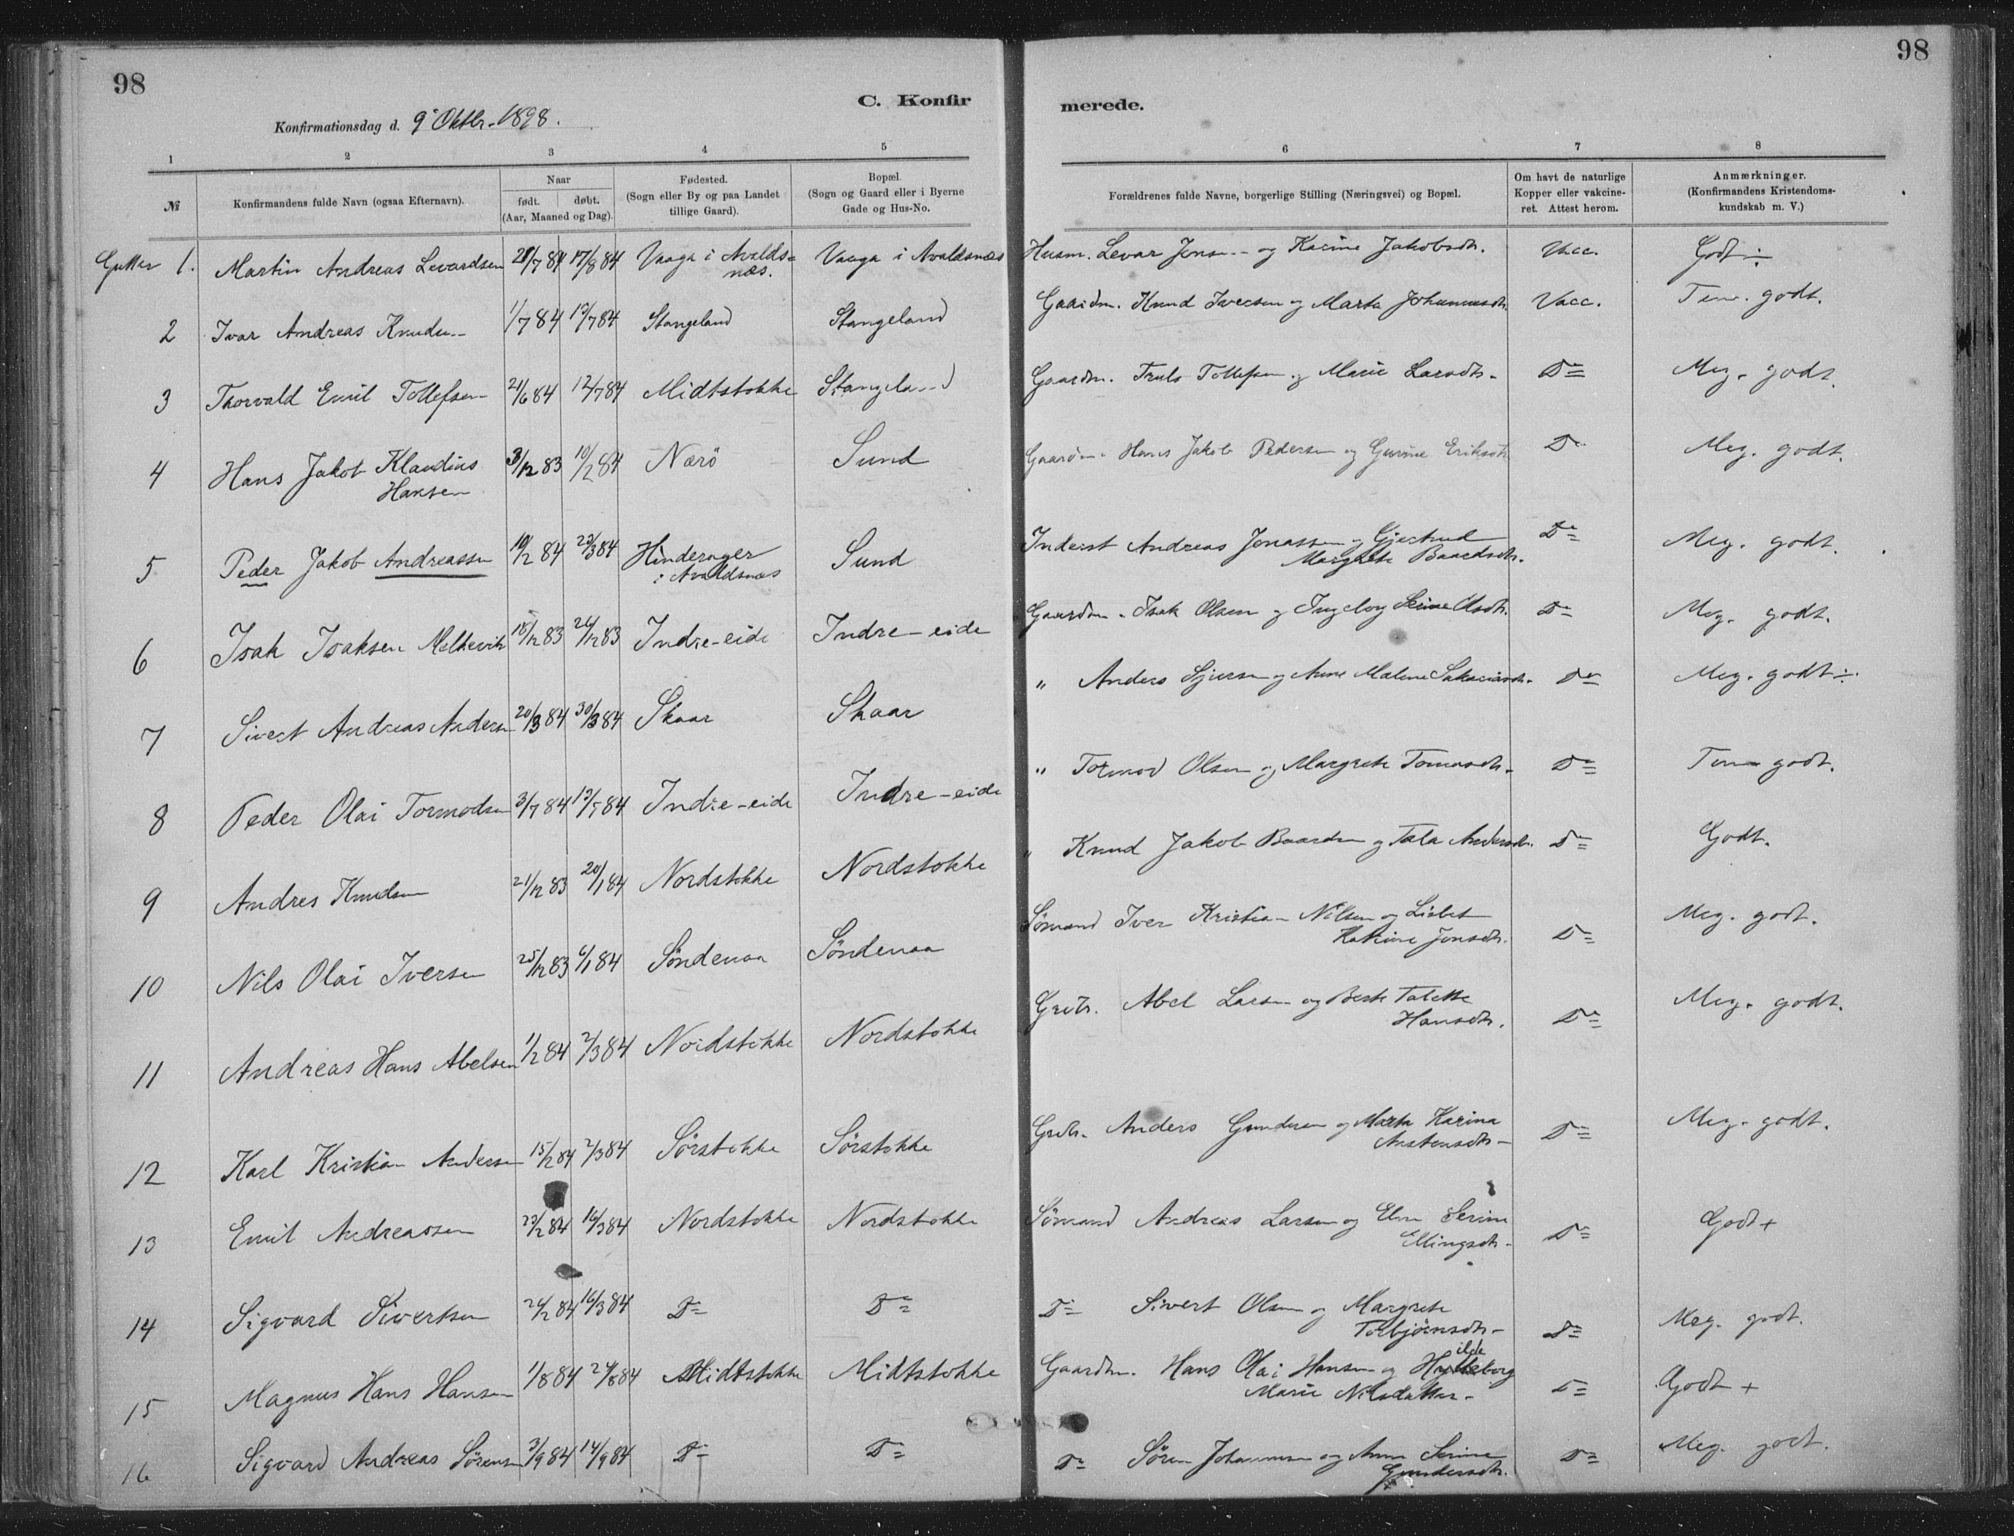 98
98
C. Konfir
merede.
Konfirmationsdag d. 9' Oktbr. 1898.
1 2 3 4 5 6 7 8
№
Konfirmandens fulde Navn (ogsaa Efternavn).
Naar
født. døbt.
(Aar, Maaned og Dag).
Fødested.
(Sogn eller By og paa Landet
tillige Gaard).
Bopæl.
(Sogn og Gaard eller i Byerne
Gade og Hus-No.
Forældrenes fulde Navne, borgerlige Stilling (Næringsvei) og Bopæl.
Om havt de naturlige
Kopper eller vakcine-
ret. Attest herom.
Anmærkninger.
(Konfirmandens Kristendoms-
kundskab m. V.)
Gutter 1. Martin Andreas Levardsen 17/8 84 Vaaga i Avalds= Vaaga i Avaldsnæs Husm. Levar Jensen og Karine Jakobsdtr. Vacc. Godt ÷
næs.
2 Ivar Andreas Knudsen 1/7 84 Stangeland Stangeland Gaardm. Knud Iversen og Marta Johannesdtr. Vacc. Tem. godt.
3 Thorvald Emil Tollefsen 21/6 84 12/7 84 Midtstokke Stangeland Gaardm. Truls Tollefsen og Marie Larsdtr. Do Meg. godt.
4 Hans Jakob Klaudius 3/12 83 10/2 84 Nærö Sund Gaardm. Hans Jakob Pedersen og Gurine Eriksdtr. Do Meg. godt.
Hansen
5 Peder Jakob Andreassen 10/2 84 23/3 84 Hinderager Sund Inderst Andreas Jonassen og Gjertrud Do Meg. godt.
i Avaldsnæs Margrete Baardsdtr.
6 Isak Isaksen Melkevik 15/12 83 26/12 83 Indre-eide Indre-eide Gaardm. Isak Olsen og Ingeborg Serine Olsdtr. Do Meg. godt.
7 Sivert Andreas Andersen 20/3 84 30/3 84 Skaar Skaar " Anders og Anne Malene Sakariasdtr. Do Meg. godt ÷
8 Peder Olai Tormodsen 3/7 84 Indre-eide Indre-eide " Tormod Olsen og Margrete Tomasdtr. Do Tem godt.
9 Andres Knudsen 21/12 83 20/1 84 Nordstokke Nordstokke " Knud Jakob Baardsen og Tala Andersdtr. Do Godt.
10 Nils Olai Iversen 25/12 83 6/1 84 Søndenaa Søndenaa Sømand Iver Kristian Nilsen og Lisbet Do Meg. godt.
Katrine Jonsdtr.
11 Andreas Hans Abelsen 1/2 84 2/3 84 Nordstokke Nordstokke Grdbr. Abel Larsen og Berte Talette Do Meg. godt.
Hansdtr.
12 Karl Kristian Andersen 15/2 84 2/3 84 Sørstokke Sørstokke Grdbr. Anders Gundersen og Marta Karina Do Meg. godt.
Austensdtr.
13 Emil Andreassen 23/2 84 16/3 84 Nordstokke Nordstokke Sømand Andreas Larsen og Elen Serine Do Godt +
Ellingsdtr.
14 Sigvard Sivertsen 26/2 84 16/3 84 Do Do Do Sivert Olsen og Margrete Do Meg. godt.
Torbjørnsdtr.
15 Magnus Hans Hansen 1/8 84 24/8 84 Midtstokke Midtstokke Gaardm. Hans Olai Hansen og Do Godt +
Marie Nilsdatter
16 Sigvard Andreas Sørensen 3/9 84 14/9 84 Do Do Do Søren Johannesen og Anne Serine Do Meg. godt.
Gundersdtr.